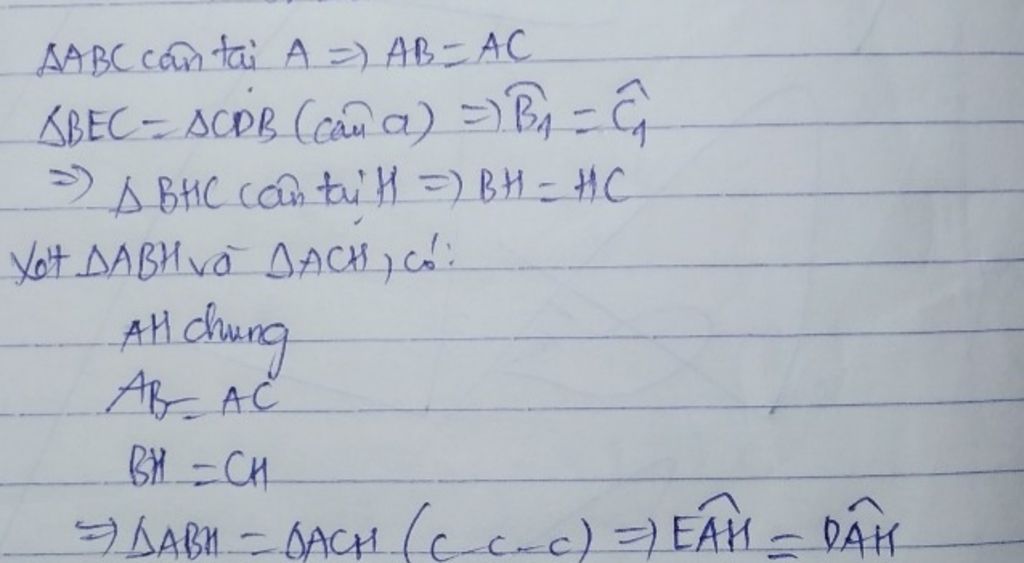 ΔABC cân tại A => AB = AC
ΔBEC = ΔCDB (câu a) => B̂₁ = Ĉ₁
=> ΔBHC cân tại H => BH = HC
Xét ΔABH và ΔACH, có:
AH chung
AB = AC
BH = CH
=> ΔABH = ΔACH (c-c-c) => EÂH = DÂH